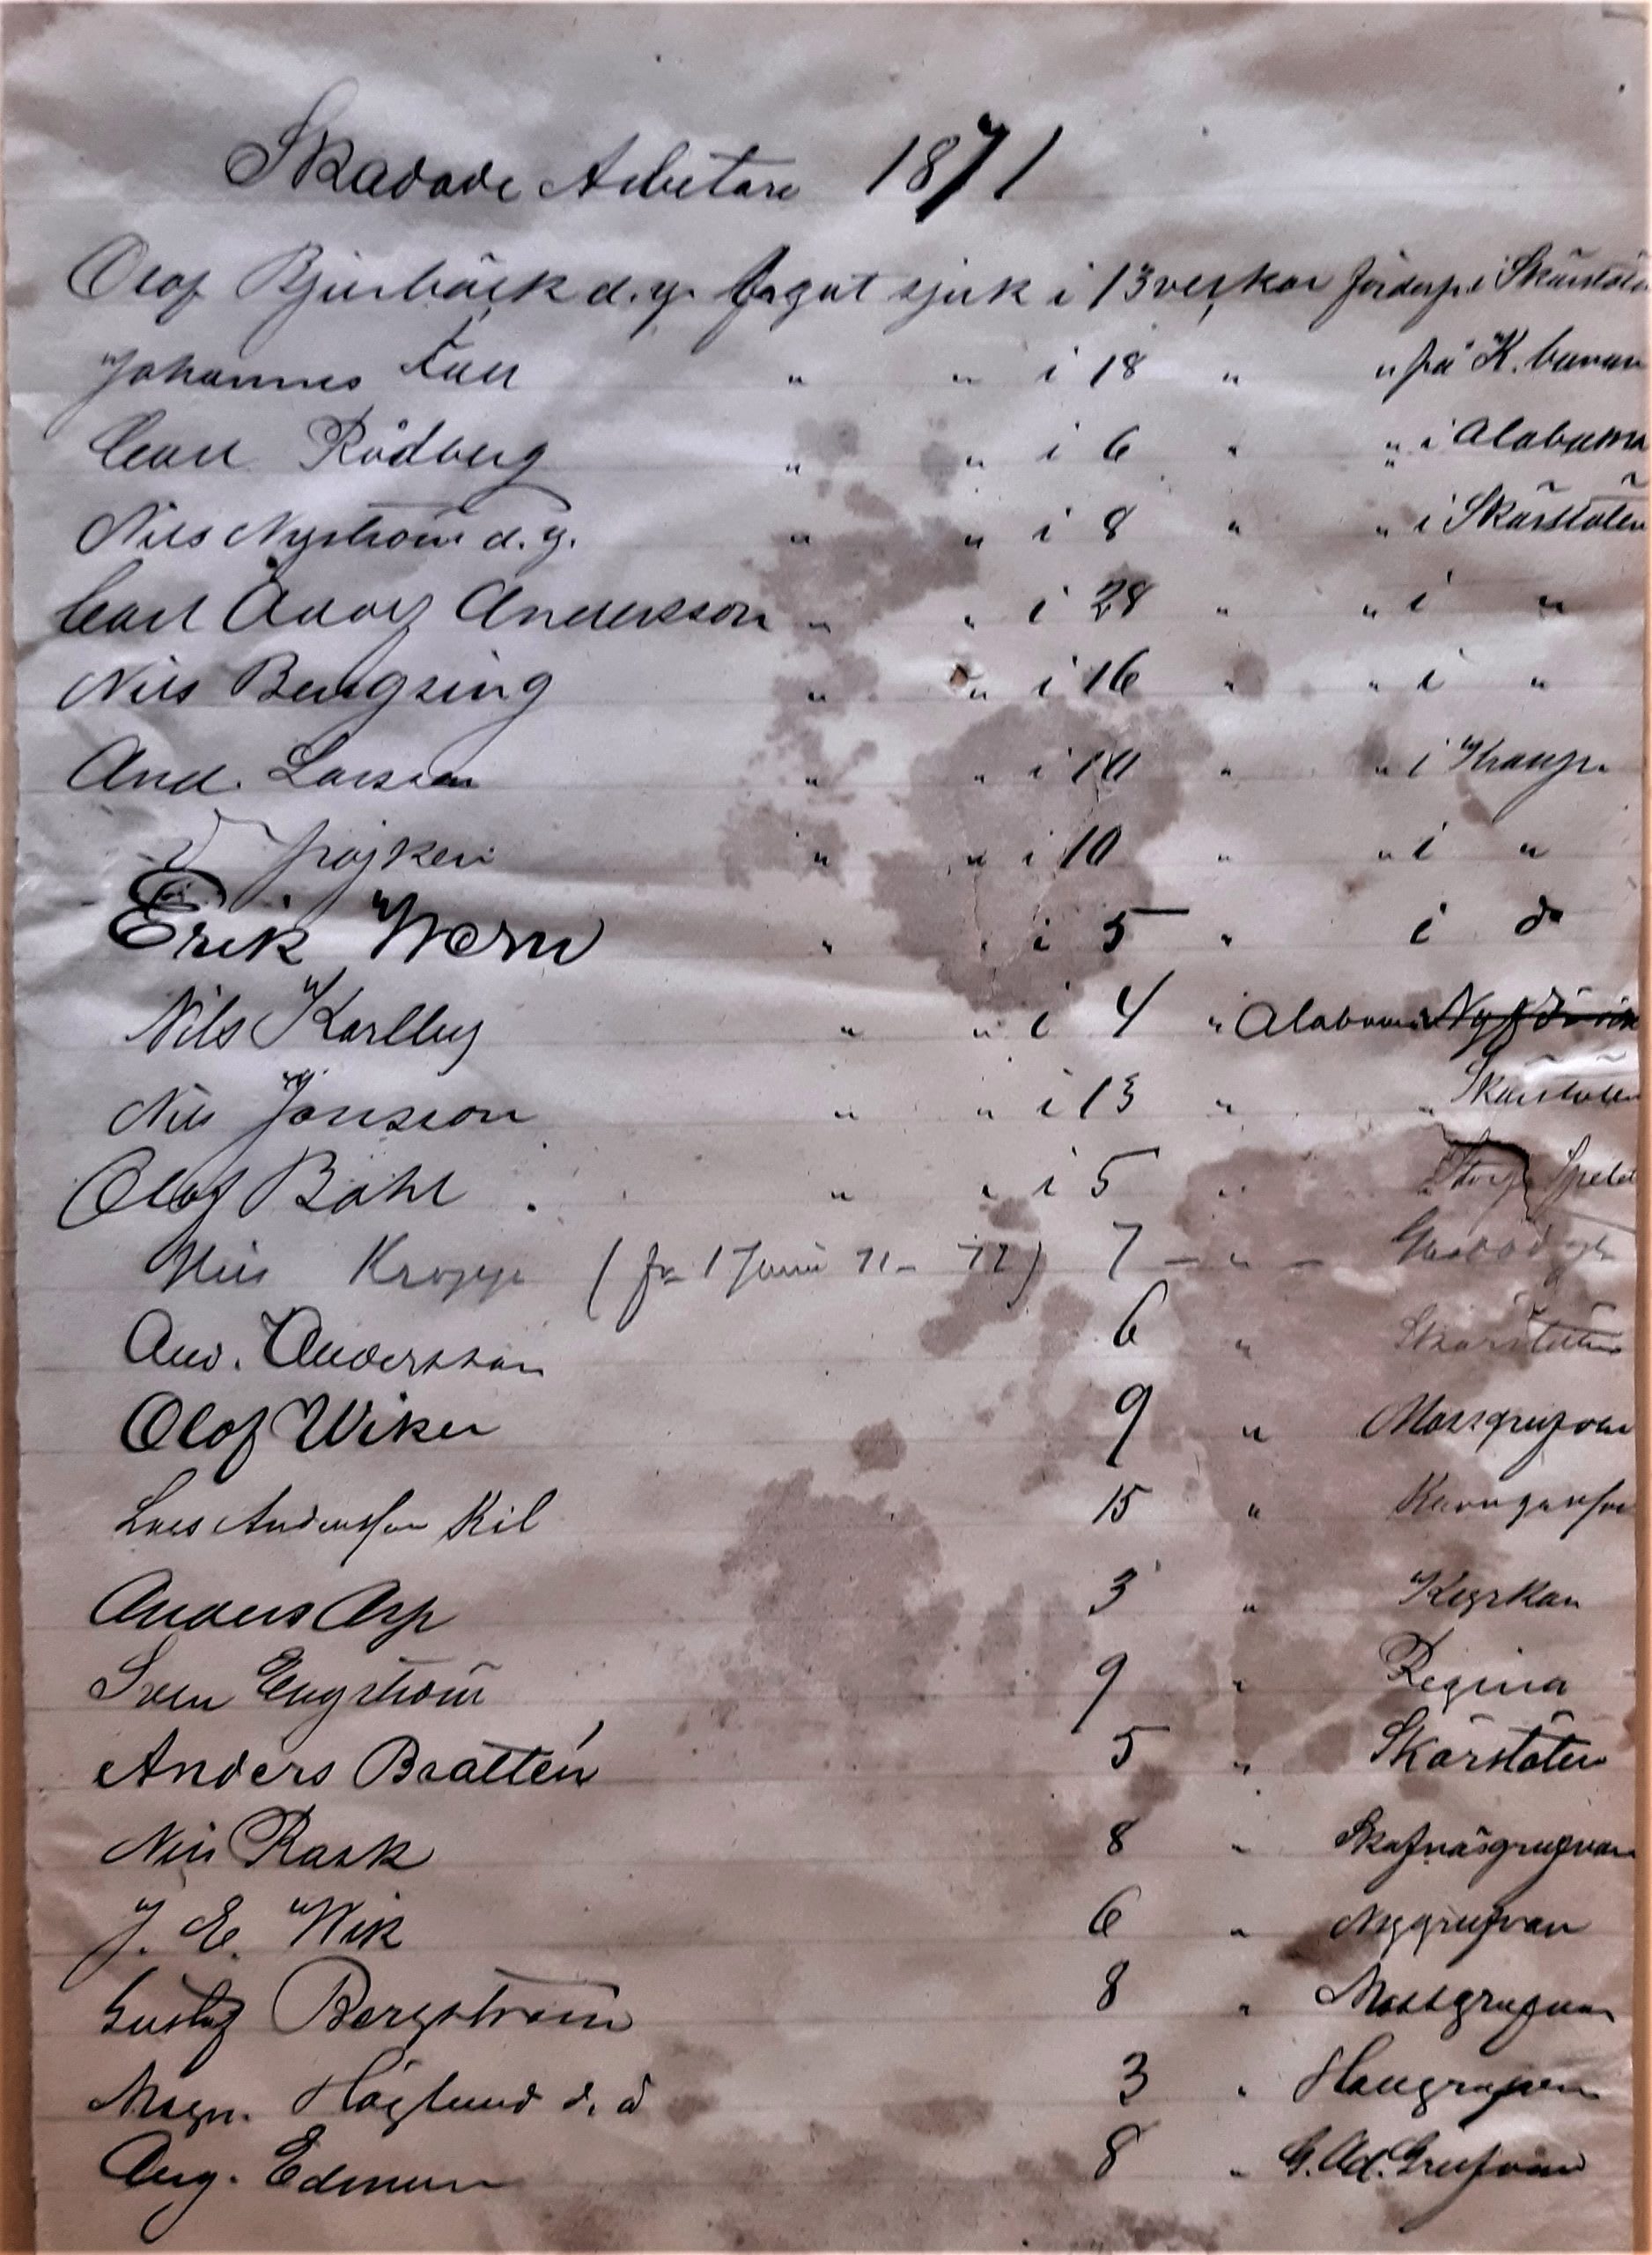 Skadade Arbetare 1871
Olof Bjurbäck d.y. legat sjuk i 13 veckor förderf. i Skärstöten
Johannes Fall " " i 18 " " på K. banan
Carl Rådberg " " i 6 " " i Alabama
Nils Nyström d.y. " " i 8 " " i Skärstöten
Carl Adolf Andersson " " i 28 " " i "
Nils Bengzing " " i 16 " " i "
And. Larsson " " i " " i Krangr.
pojken " " i 10 " " i "
Erik Wern " " i 5 " i do
Nils Karlberg " " i 4 " Alabama
Nils Jonsson " " i 13 " " Skärstöten
Olof Båhl " " i 5 "
Nils Kroppe (fr 1 Juni 71 - 72) 7 - " -
And. Andersson 6 " Skärstöten
Olof Wiker 9 " Mossgrufvan
Lars Andersson Kil 15 "
Anders Asp 3 " Kyrkan
Sven Engström 9 " Regina
Anders Bratten 5 " Skärstöten
Nils Rask 8 " Skafnäsgrufvan
J. E. Wik 6 " Nygrufvan
Gustaf Bergström 8 " Mossgrufvan
Magn. Höglund d. ä 3 "
Aug. Edman 8 " G. Ad. Grufvan